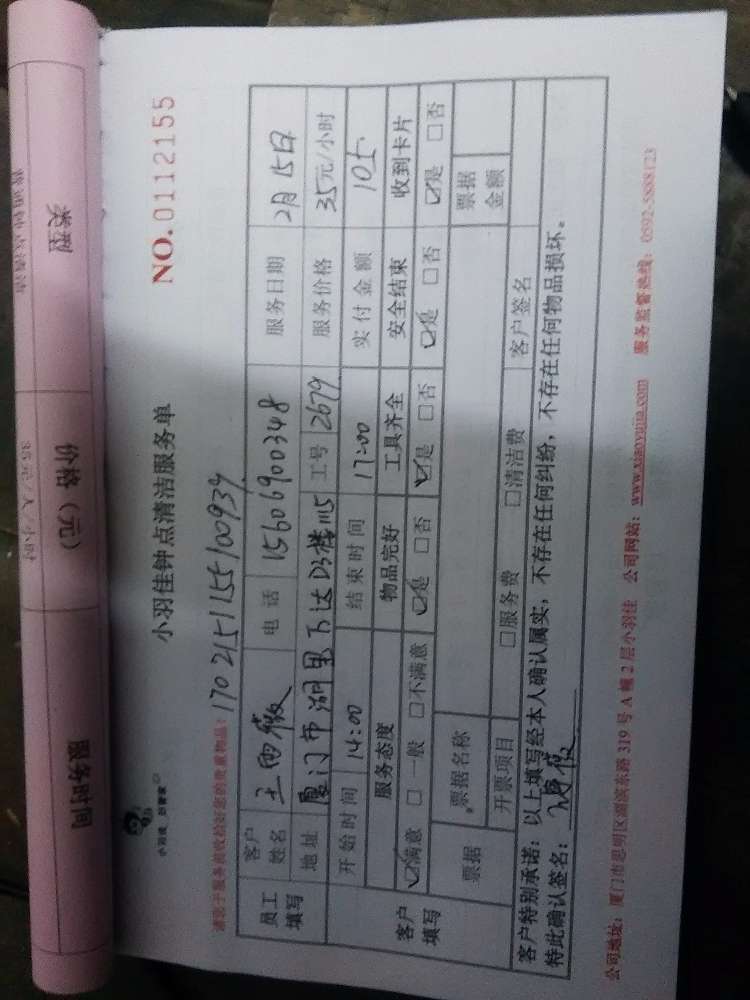 类型
价格（元）
服务时间
35元/人/小时
小羽佳钟点清洁服务单
NO.0112155
小羽佳 好管家
请您于服务前收检好您的贵重物品：
1702151155100939
员工填写
客户姓名 王西薇 电话 15606900348 服务日期 2月15日
地址 厦门市湖里下达D3楼115 工号 2679 服务价格 35元/小时
开始时间 14:00 结束时间 17:00 实付金额 105
客户填写
服务态度 物品完好 工具齐全 安全结束 收到卡片
☑满意 □一般 □不满意 ☑是 □否 ☑是 □否 ☑是 □否 ☑是 □否
票据 票据名称 票据金额
开票项目 □服务费 □清洁费 客户签名
客户特别承诺：以上填写经本人确认属实，不存在任何纠纷，不存在任何物品损坏。
特此确认签名：
公司地址：厦门市思明区湖滨东路319号A幢2层小羽佳 公司网站：www.xiaoyujia.com 服务监督热线：0592-5888123